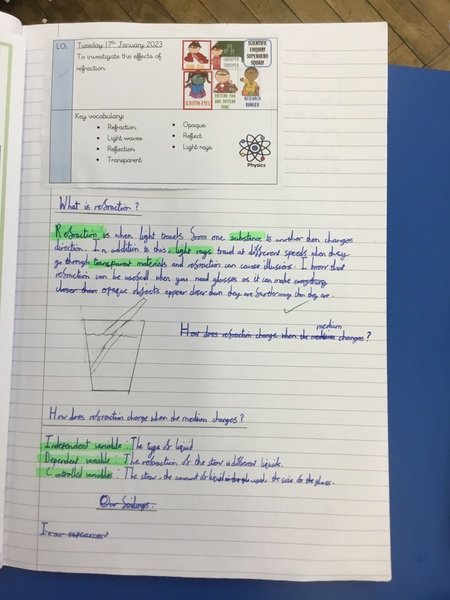 LO:
Tuesday 17th January 2023
To investigate the effects of
refraction
SCIENTIFIC
ENQUIRY
SUPERHERO
SQUAD!
FAIR
GROUPER
TROOPER
SCRUTIN-EYES
PATTERN MAN
AND PATTERN
PAWS
RESEARCH
RANGER
Key vocabulary:
• Refraction
• Light waves
• Reflection
• Transparent
• Opaque
• Reflect
• Light rays
Physics
What is refraction?
Refraction is when light travels from one substance to another then changes
direction. In addition to this, light rays travel at different speeds when they
go through transparent materials and refraction can cause illusions. I know that
refraction can be useful when you need glasses as it can make everything
closer than opaque objects appear closer than they are further away than they are.
medium
How does refraction change when the medium changes?
How does refraction change when the medium changes?
Independent variable: The type of liquid.
Dependent variable: The refraction of the straw in different liquids.
Controlled variables: The straw, the amount of liquid used, the size of the glass.
Our findings:
In our experiment